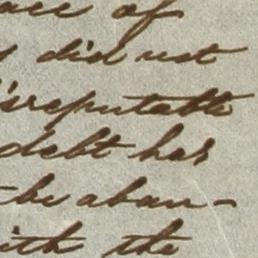 ace of
s did not
isreputable
debt has
the aban-
ith the